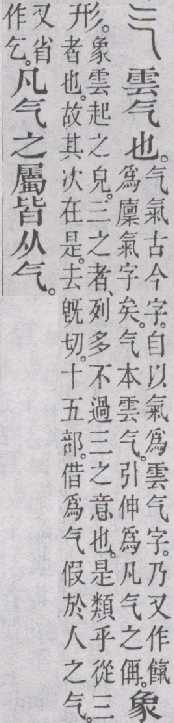 气 雲气也。
气氣古今字。自以氣爲雲气字。乃又作餼
爲廩氣字矣。气本雲气。引伸爲凡气之偁。
象
形。
象雲起之皃。三之者列多不過三之意也。是類乎從三
者也。故其次在是。去旣切。十五部。借爲气假於人之气。
又省
作乞。
凡气之屬皆从气。